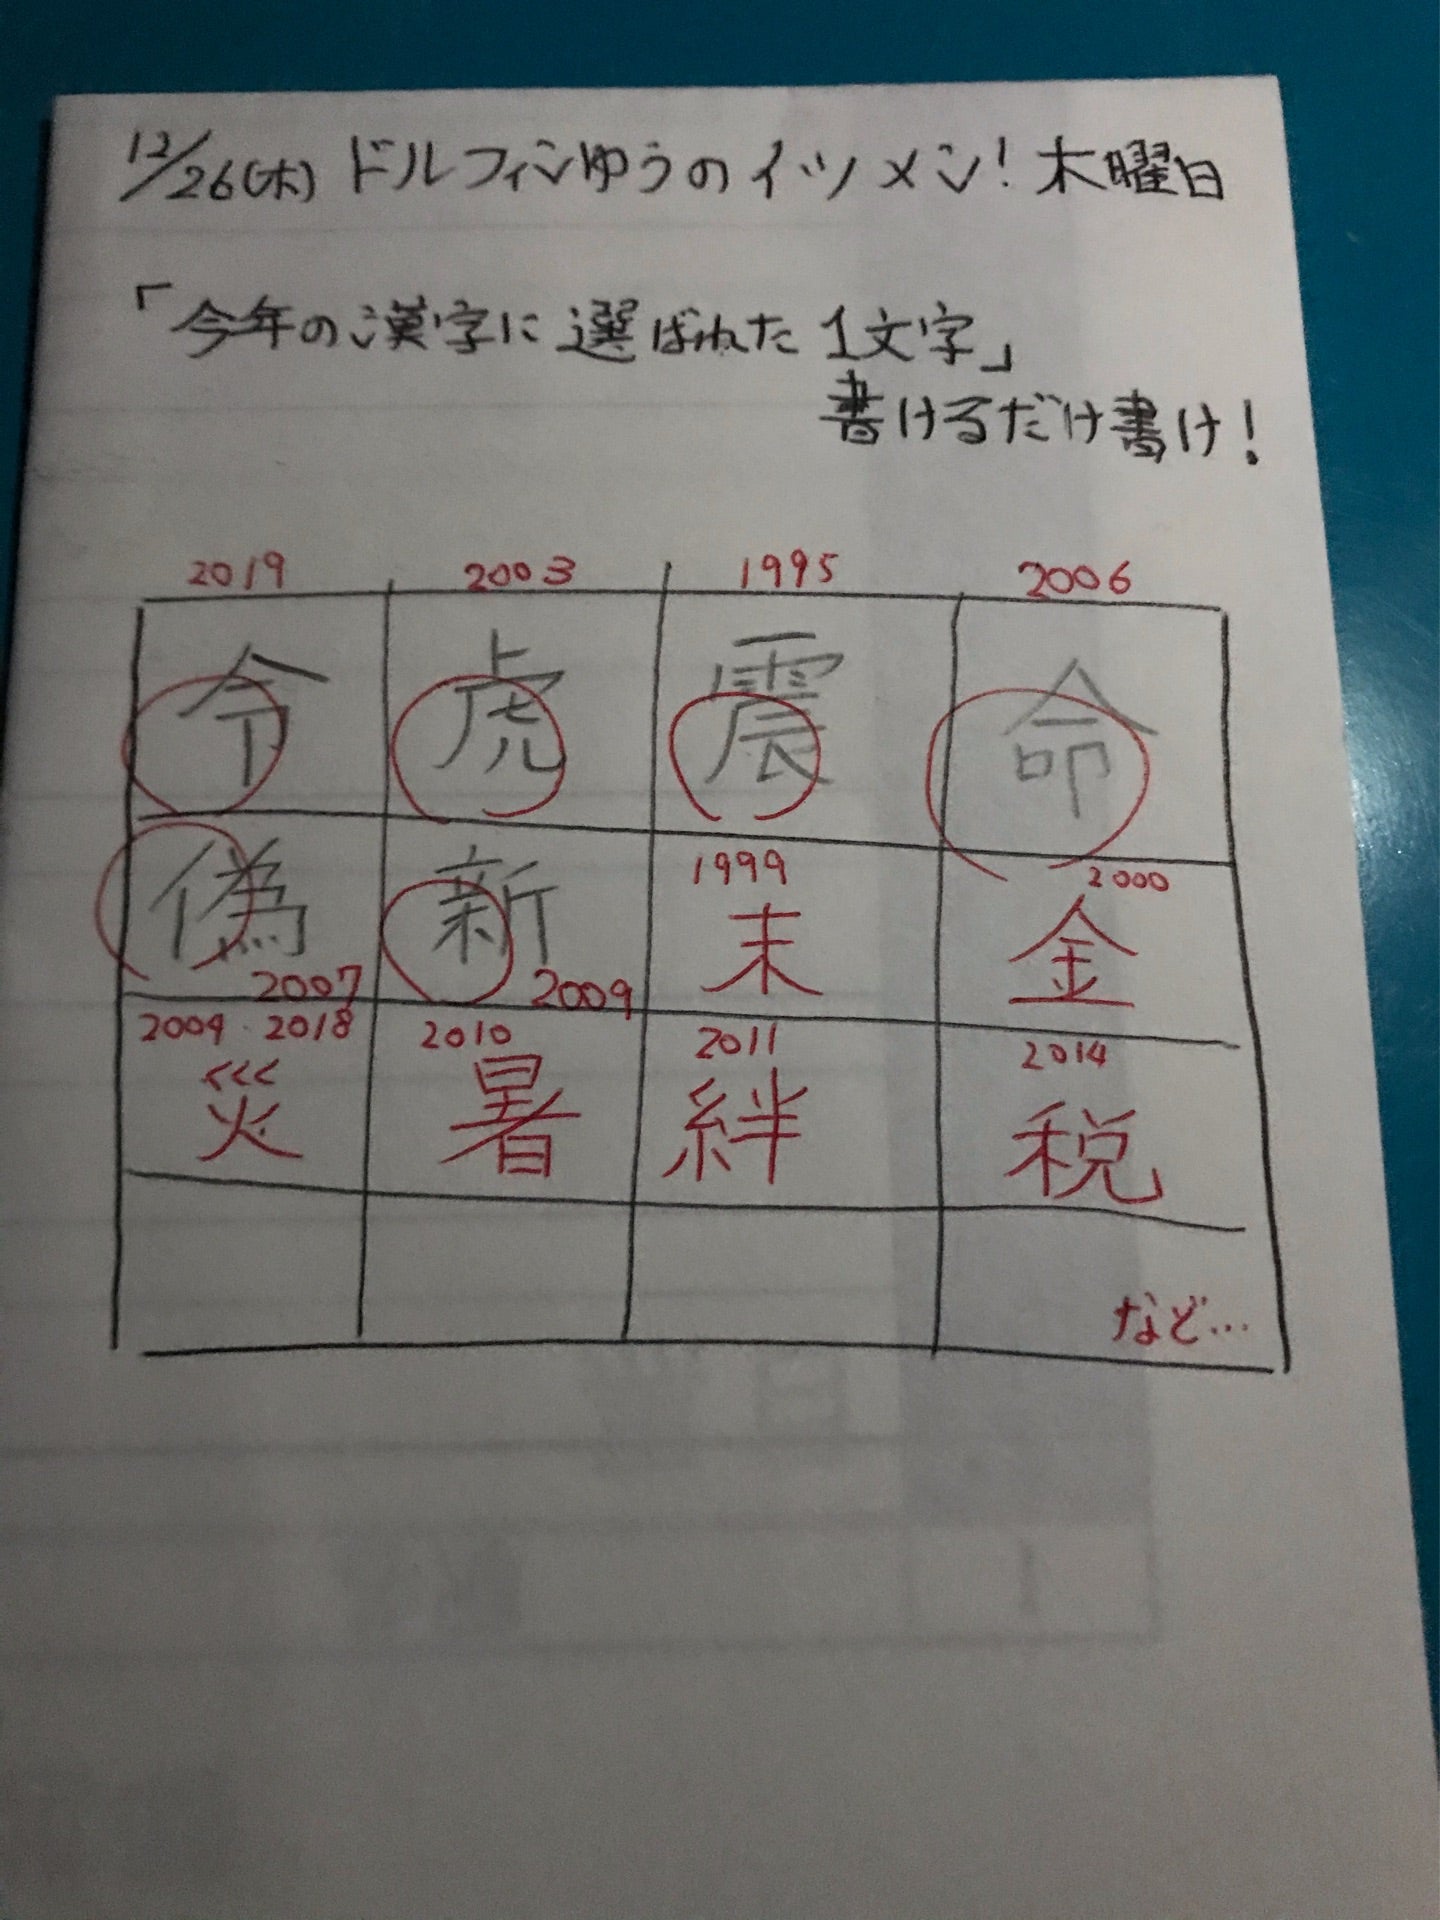 12/26(木) ドルフィンゆうのイツメン!木曜日
「今年の漢字に選ばれた1文字」
書けるだけ書け!
2019 2003 1995 2006
令 虎 震 命
1999 2000
偽 新 末 金
2007 2009
2004・2018 2010 2011 2014
災 暑 絆 税
など…